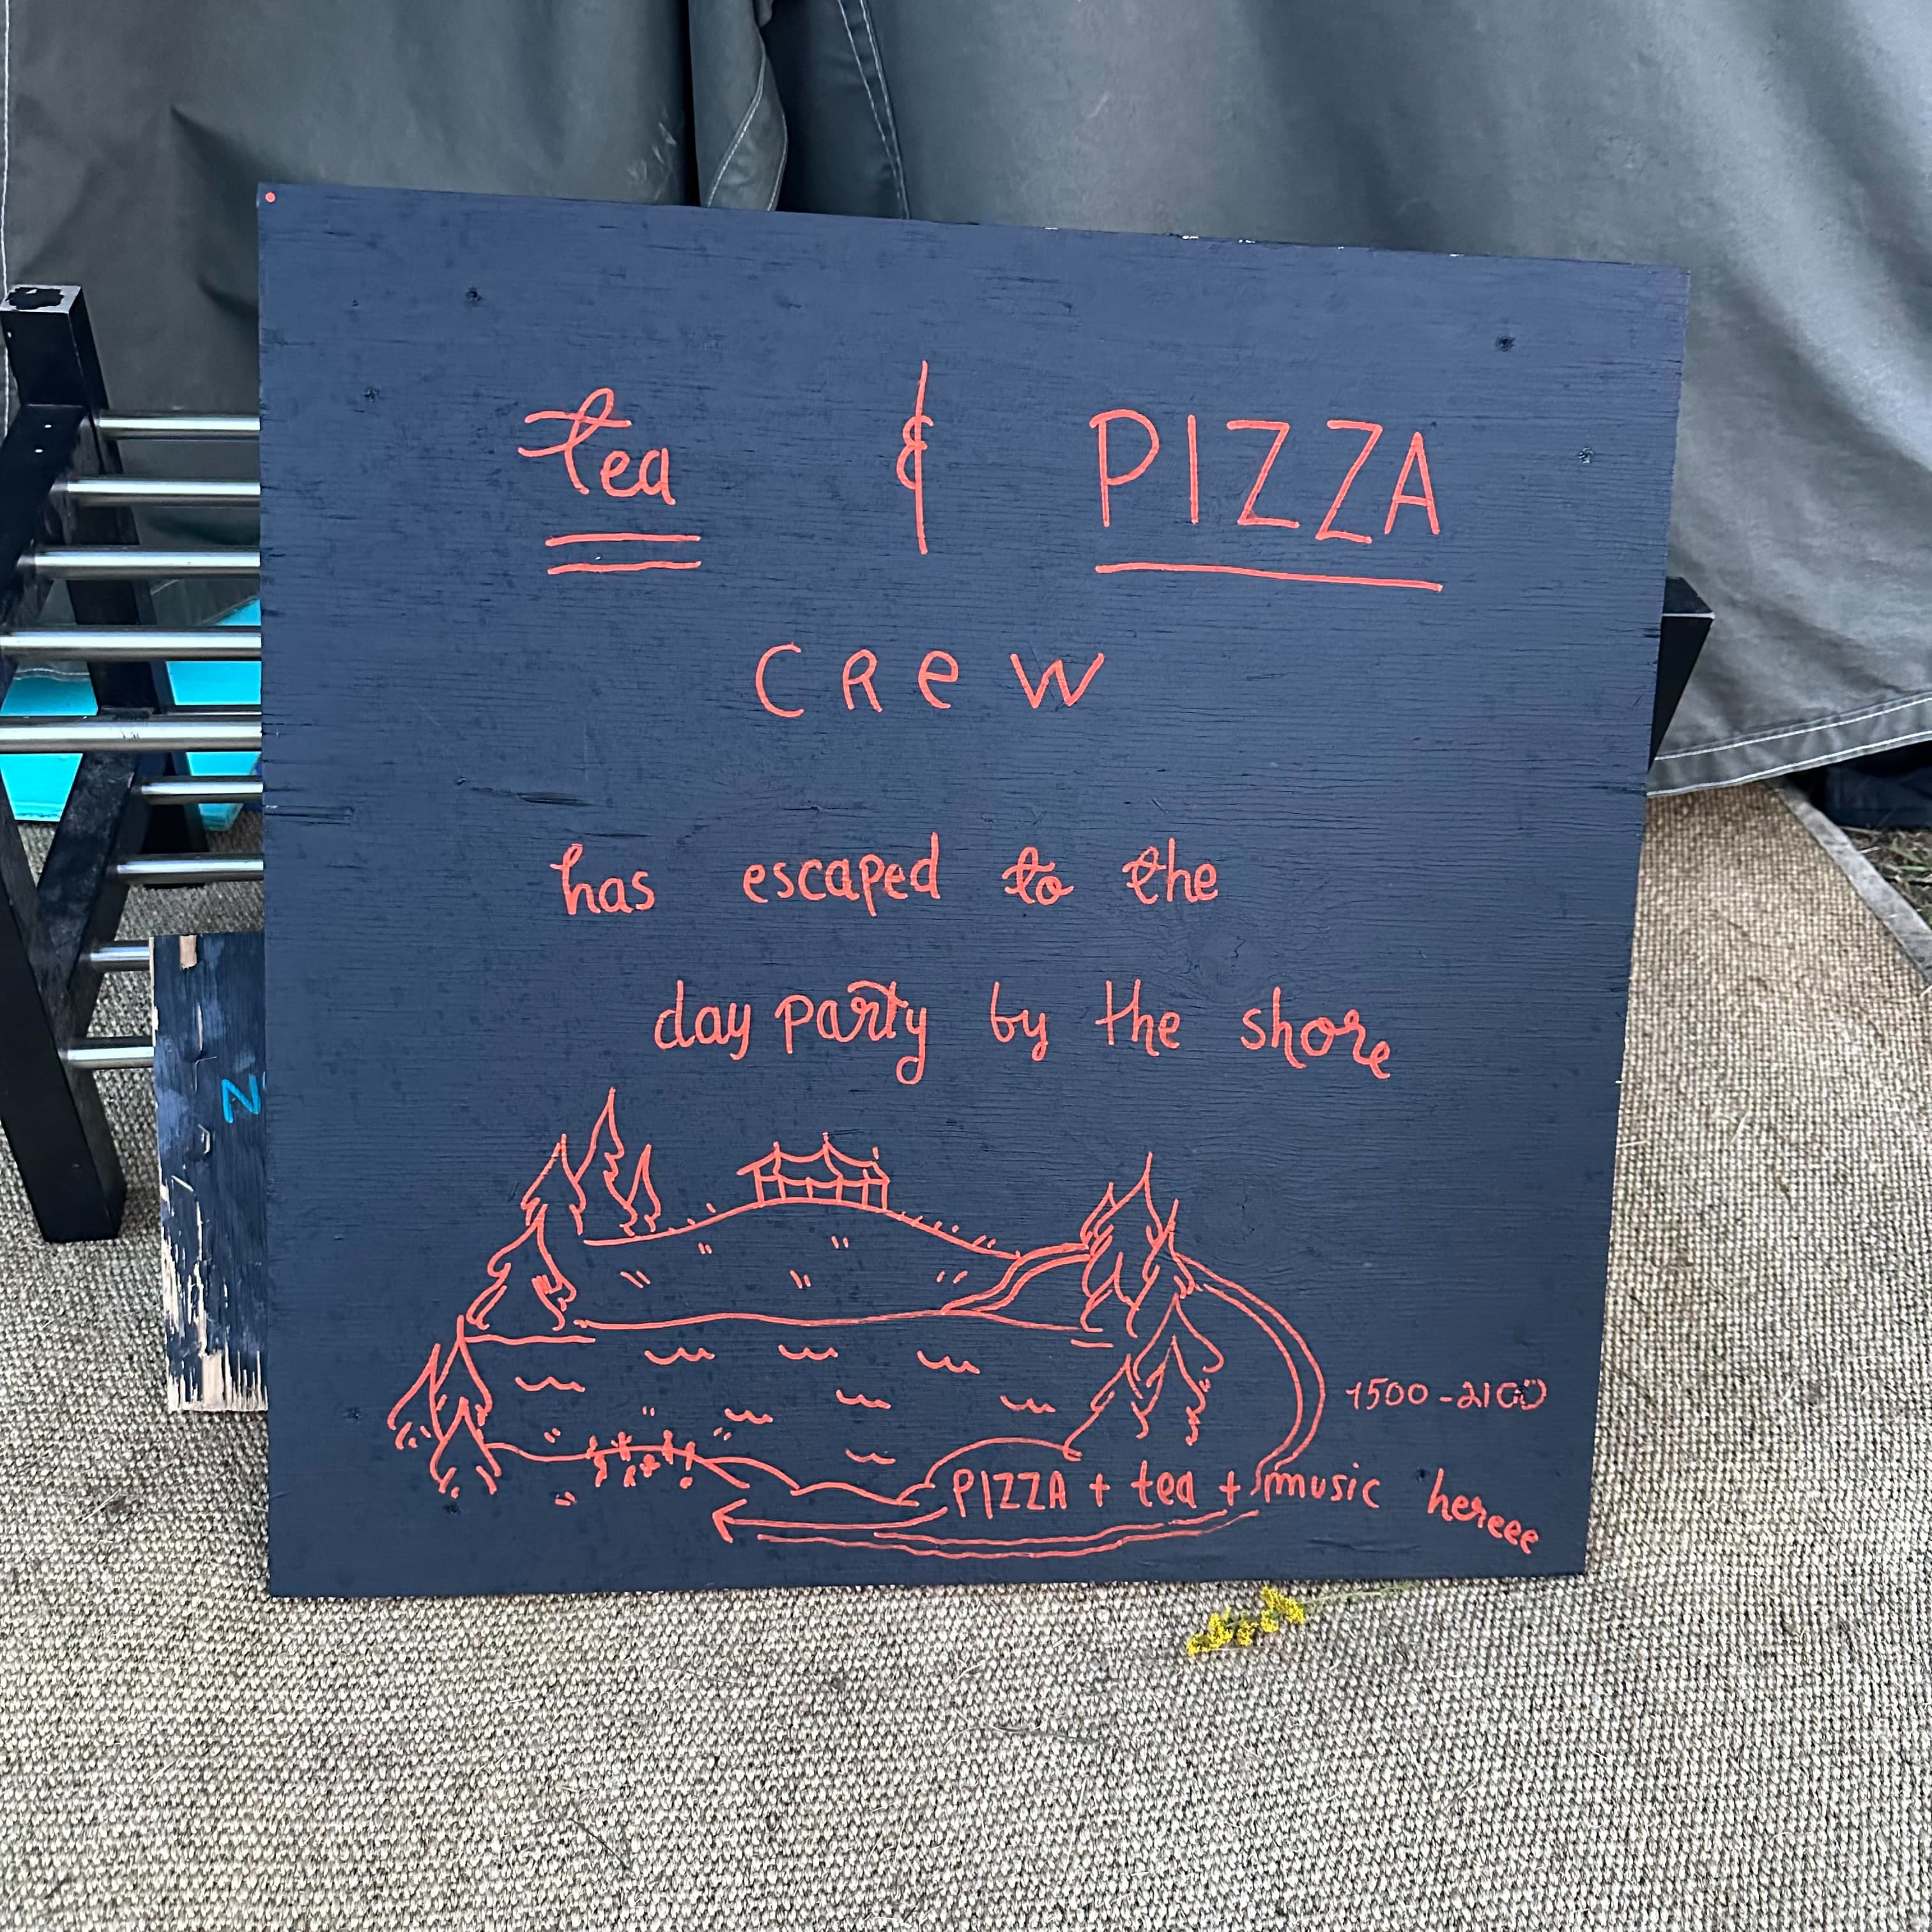 tea & PIZZA
CReW
has escaped to the
day party by the shore
1500-2100
PIZZA + tea + music hereee